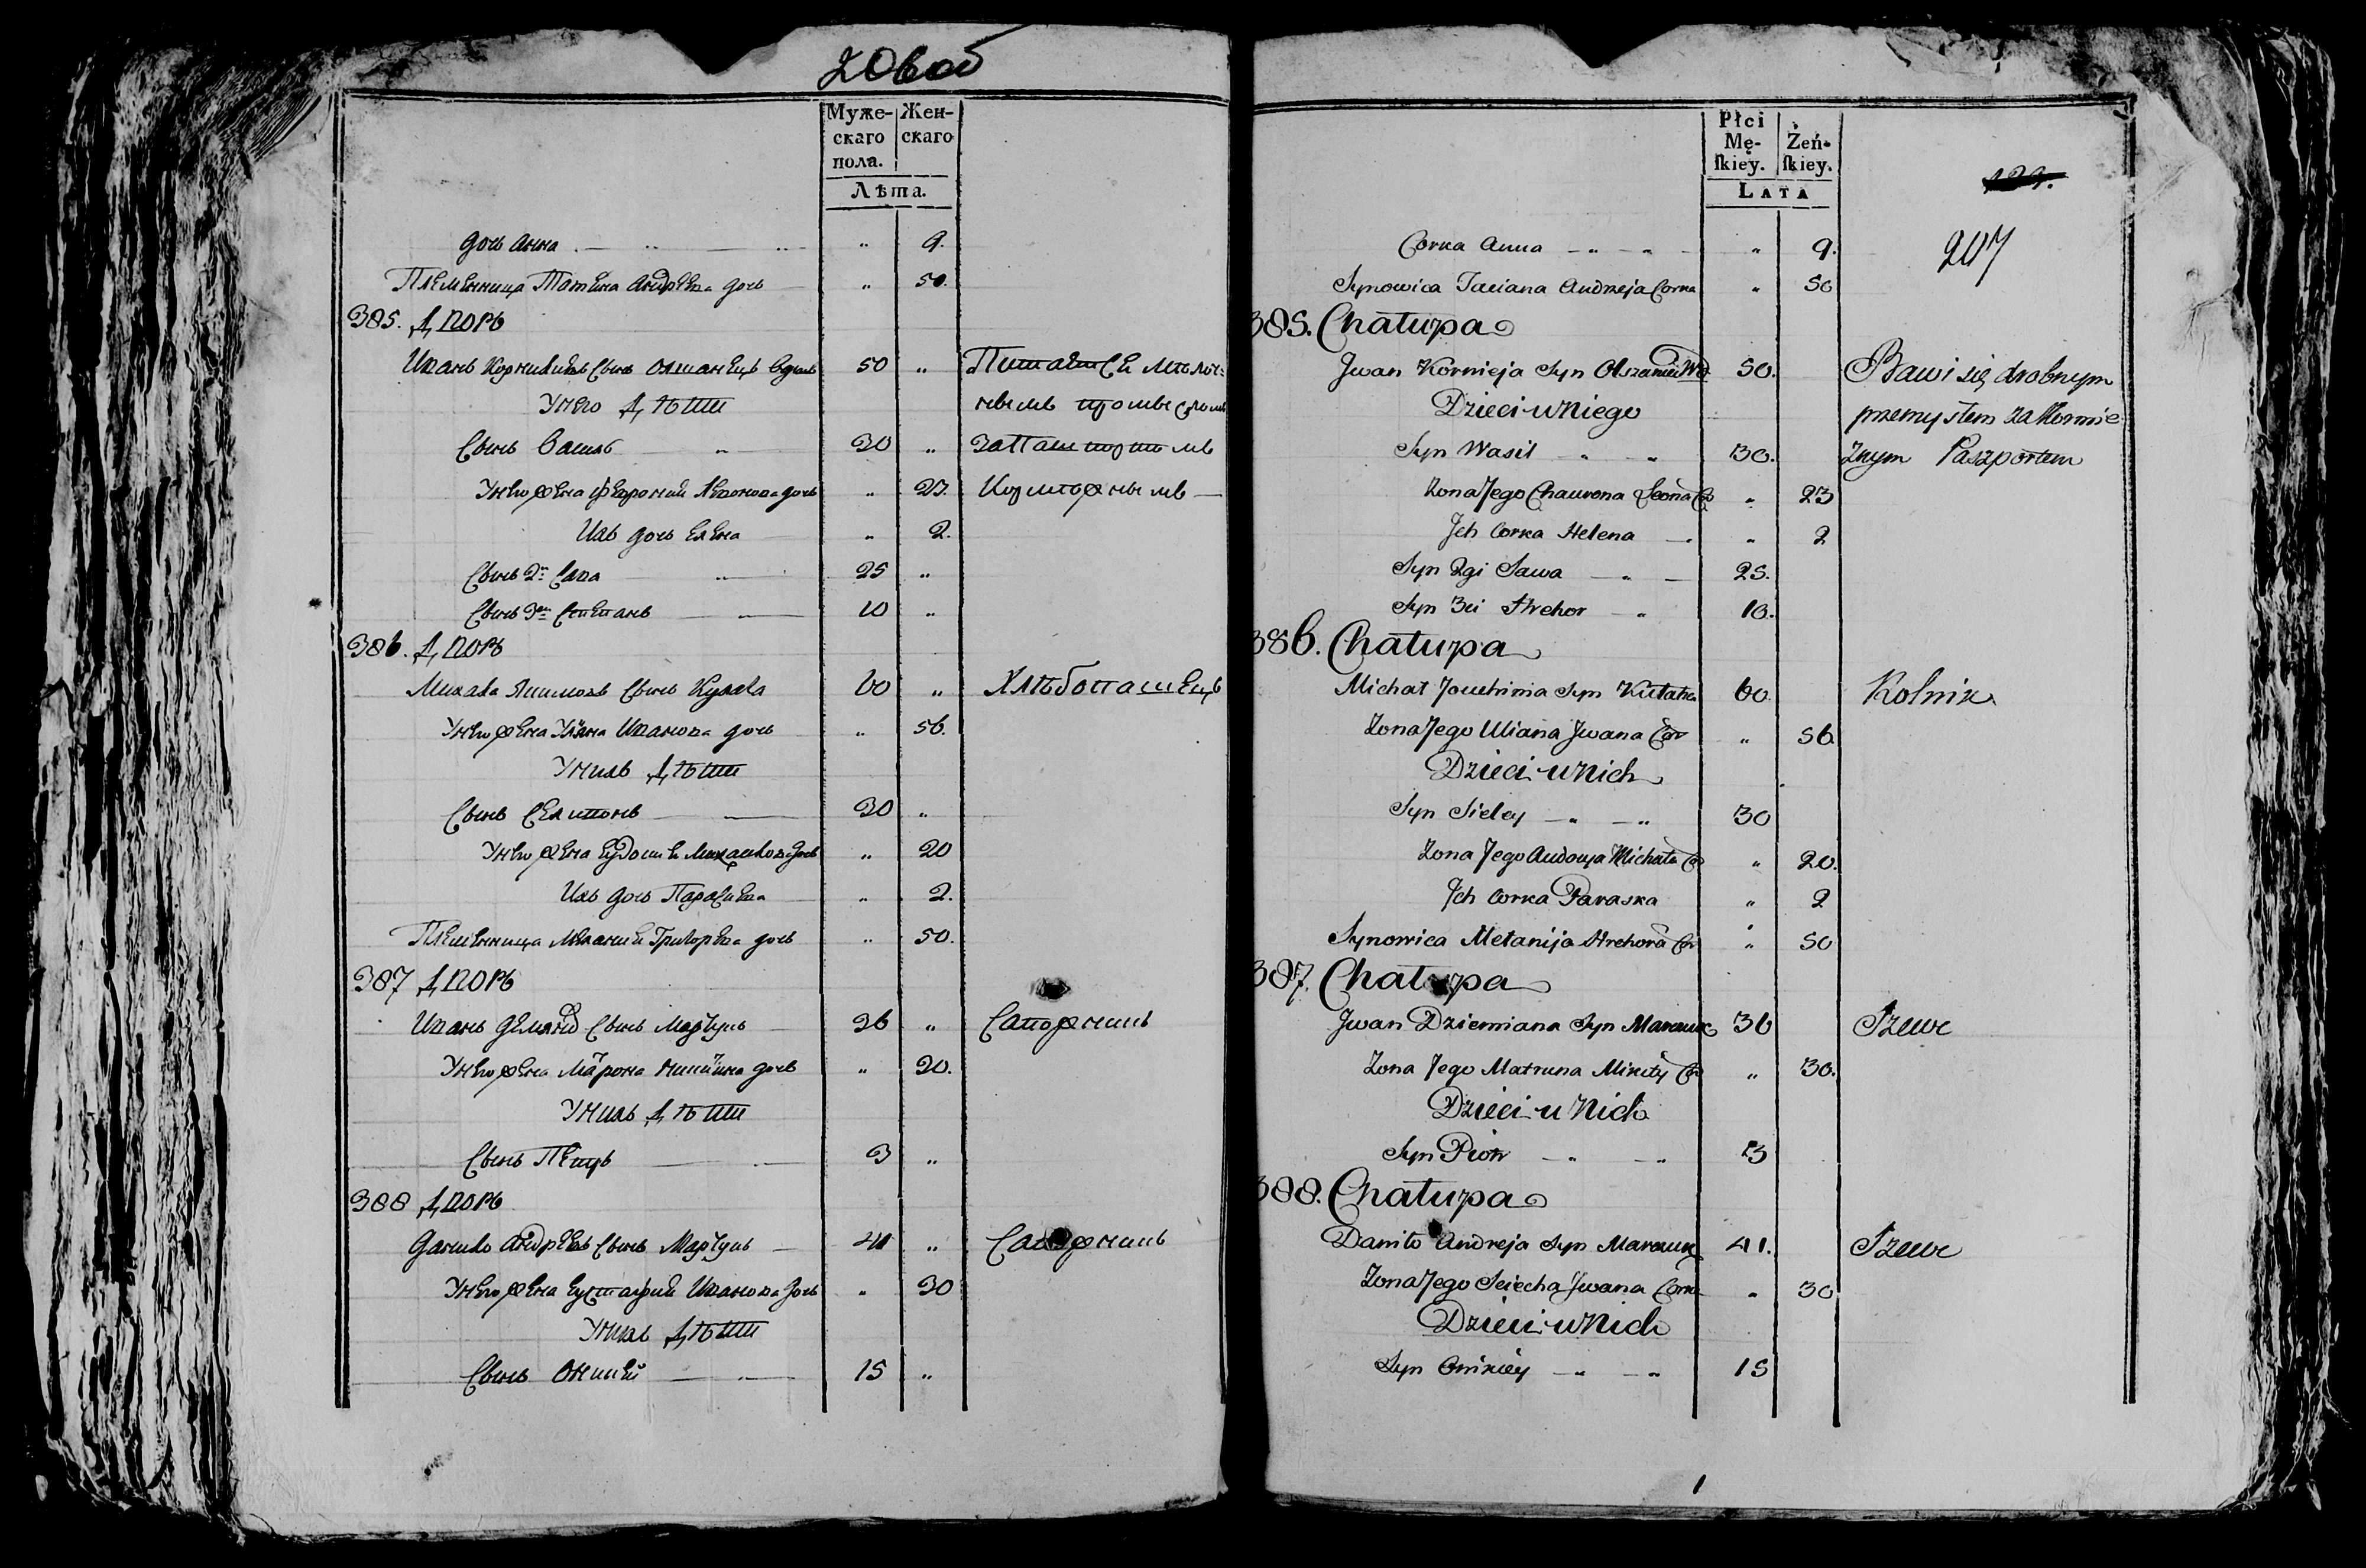 Муже-
скаго
пола.
Жен-
скаго
Лѣта.
дочь Анна „ 9.
Племянница Татіана Андрѣева дочь „ 50.
385. Дворъ
Иванъ Корнѣевъ сынъ Олшанецъ вдовъ 50 „ Питается мѣлоч-
У него Дѣти нымъ промысломъ
Сынъ Василь 30 „ За Пашпортомъ
У него жена Феѵронія Леонова дочь „ 23. Кормчежнымъ
Ихъ дочь Елена „ 2.
Сынъ 2й Сава 25 „
Сынъ 3й Степанъ 10 „
386. Дворъ
Михайла Якимовъ сынъ Кулага 60 „ Хлѣбопашецъ
У него жена Уліяна Иванова дочь „ 56.
У нихъ Дѣти
Сынъ 30 „
У него жена Евдокія Михайлова дочь „ 20
Ихъ дочь Парасковья „ 2.
Племянница Меланія Григорьева дочь „ 50.
387 Дворъ
Иванъ Демяновъ Сынъ Марчукъ 36 „ Сапожникъ
У него жена Матрона Никитина дочь „ 30.
У нихъ Дѣти
Сынъ Петръ 3 „
388 Дворъ
Данило Андрѣевъ Сынъ Марчукъ 41 „ Сапожникъ
У него жена Евстафія Иванова дочь „ 30
У нихъ Дѣти
Сынъ Оникѣй 15 „
Płci
Mę-
ſkiey.
Żeń-
ſkiey.
LATA
207
Corka Anna „ 9.
Synowica Taciana Andrzeja Corka „ 50
385. Chałupa
Jwan Kornieja Syn Olszaniec Wd. 50. Bawi się drobnym
Dzieci u Niego przemysłem za Kormie-
Syn Wasil 30. żnym Paszportem
Zona Jego Chawrona Leona Co „ 23
Jch Corka Helena „ 2
Syn 2gi Sawa 25.
Syn 3ci Hrehor 10.
386. Chałupa
Michał Jouchima Syn Kułaha 60. Rolnik
Zona Jego Uliana Jwana Cor „ 56
Dzieci u Nich
Syn Sieley 30
Zona Jego Audocja Michała Co „ 20.
Jch Corka Paraska „ 2
Synowica Melanija Hrehora Cor „ 50
387. Chałupa
Jwan Dziemiana Syn Marczuk 36 Szewc
Zona Jego Matruna Mikity Co „ 30.
Dzieci u Nich
Syn Piotr 3
388. Chałupa
Daniło Andreja Syn Marczuk 41. Szewc
Zona Jego Sciecha Jwana Corka „ 30
Dzieci u Nich
Syn Onikiey 15